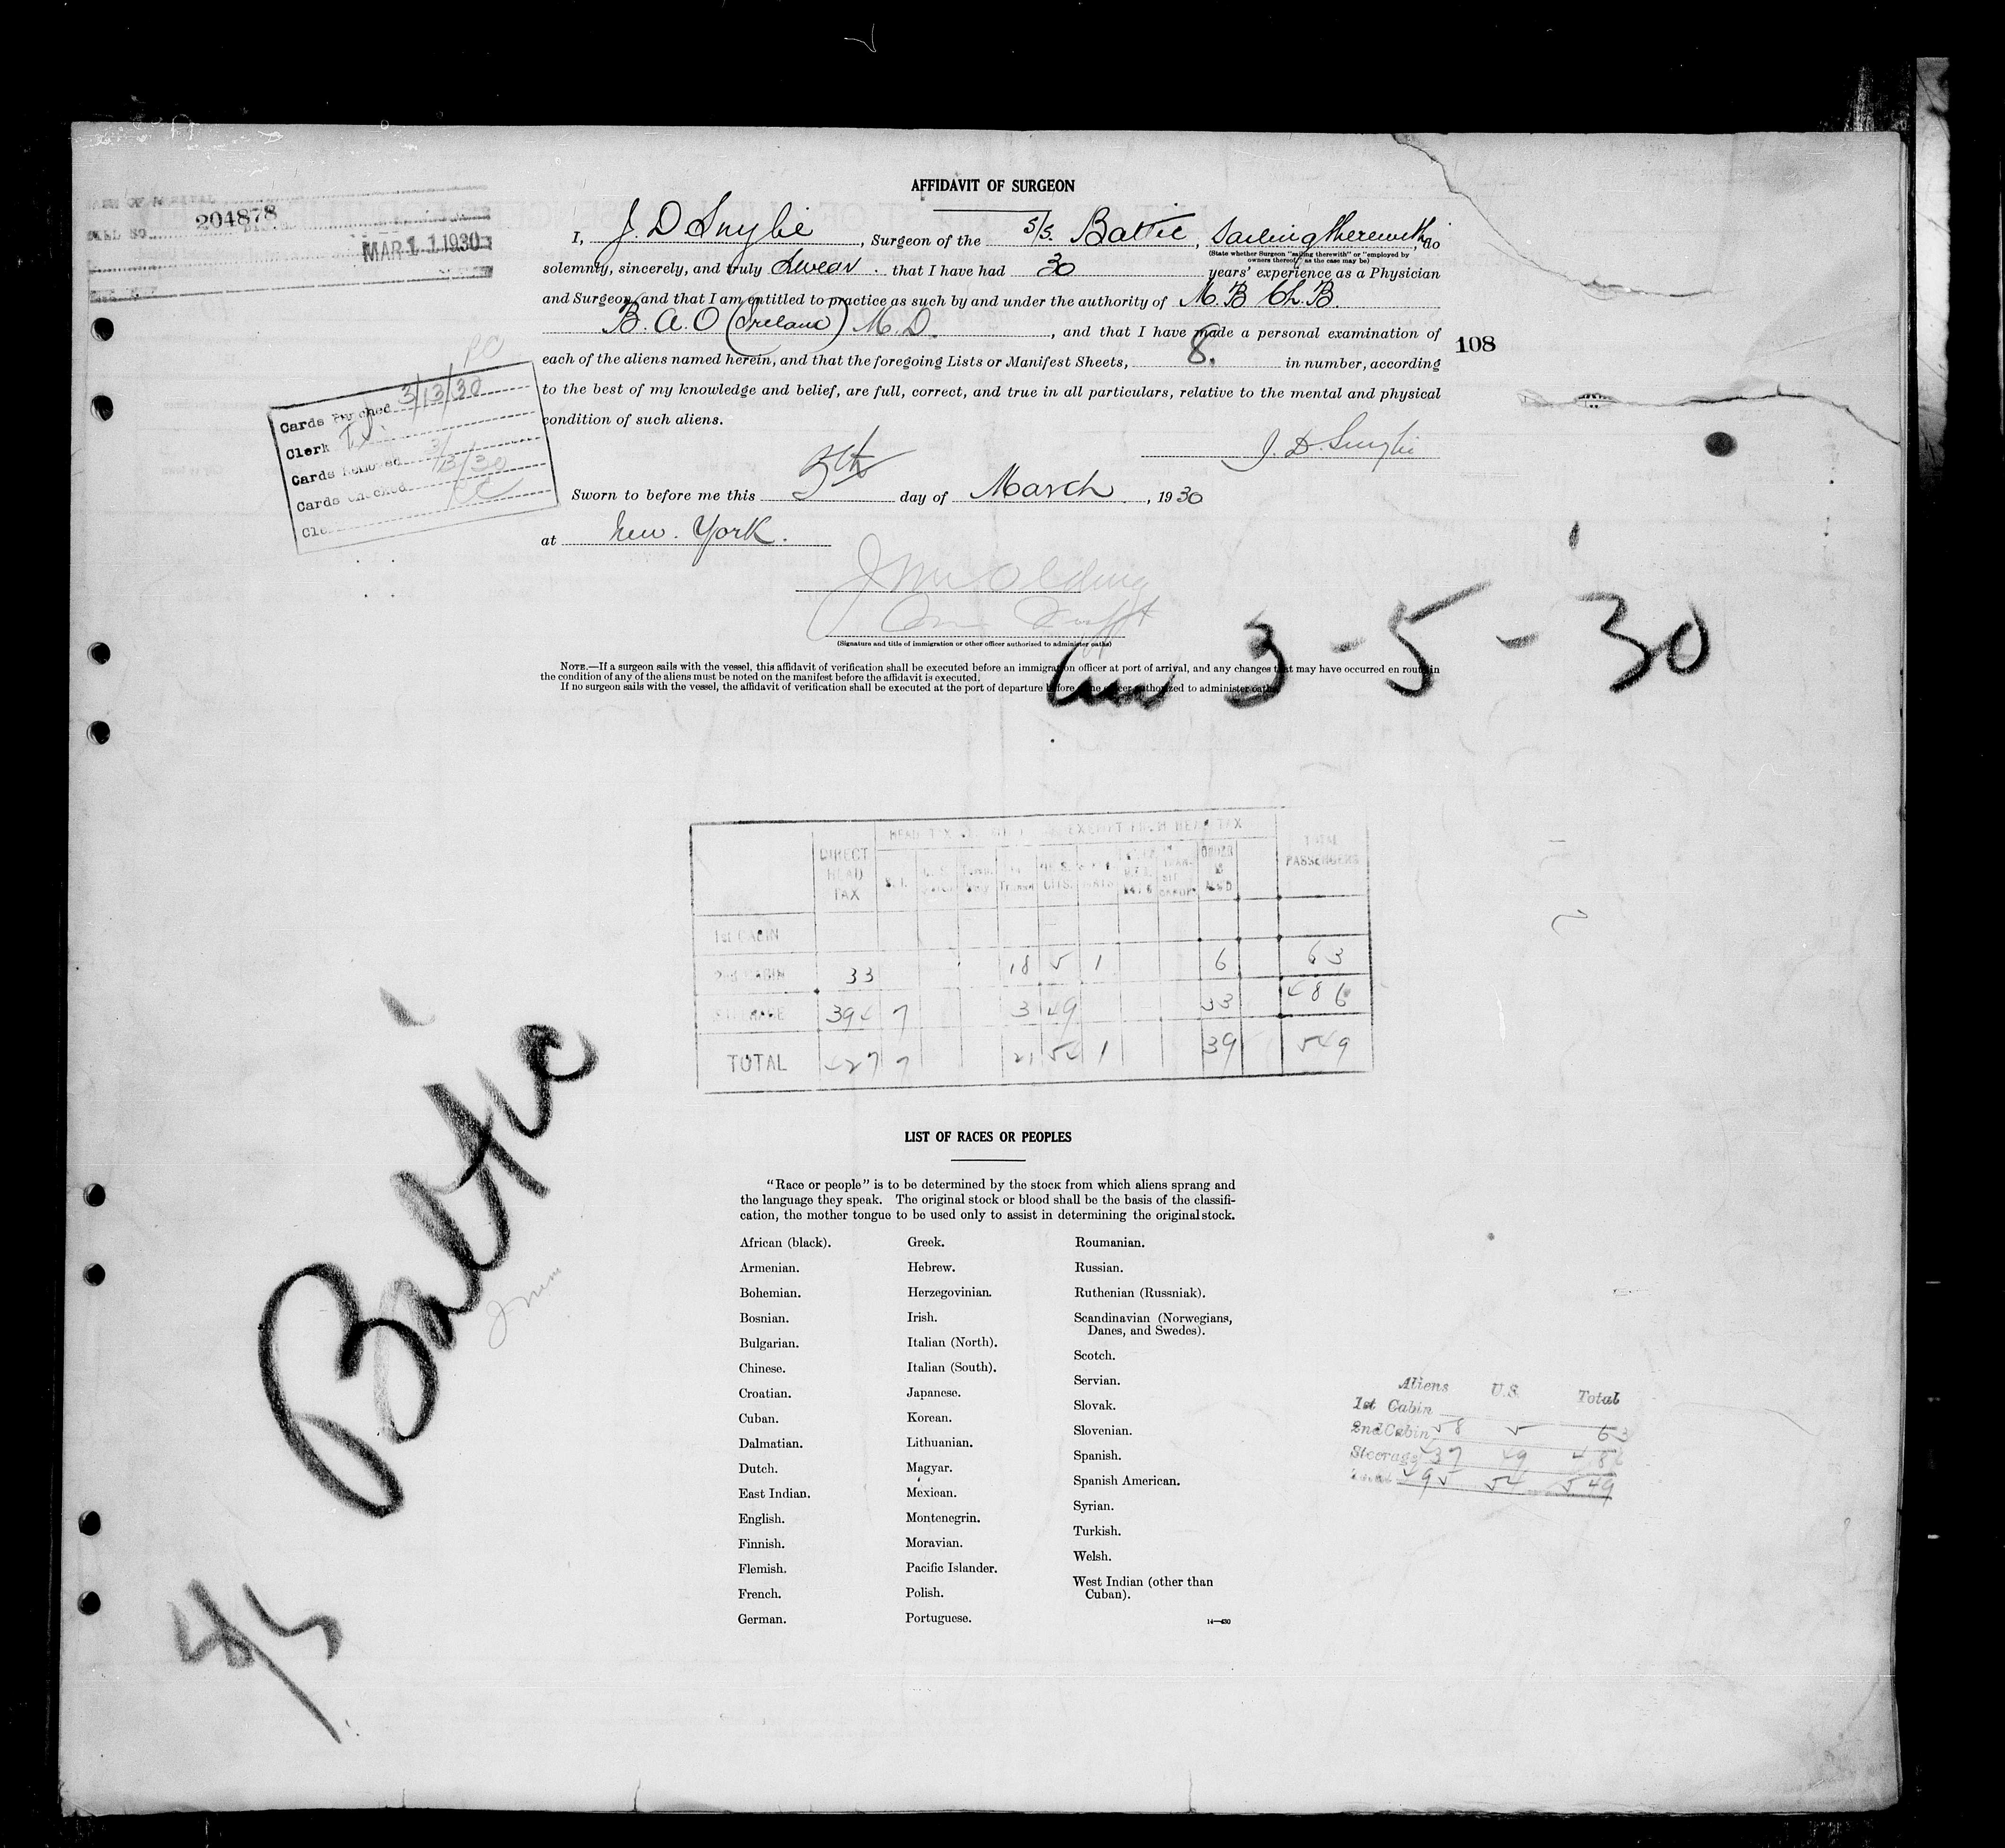 204878
MAR 11 1930
AFFIDAVIT OF SURGEON
I, J. D. Smylie, Surgeon of the S/S. Baltic, Sailing therewith, do
(State whether Surgeon "sailing therewith" or "employed by
owners thereof," as the case may be)
solemnly, sincerely, and truly Swear. that I have had 30 years' experience as a Physician
and Surgeon, and that I am entitled to practice as such by and under the authority of M. B Ch. B.
B. A. O (Ireland) M. D., and that I have made a personal examination of
108
each of the aliens named herein, and that the foregoing Lists or Manifest Sheets, 8. in number, according
to the best of my knowledge and belief, are full, correct, and true in all particulars, relative to the mental and physical
condition of such aliens.
J. D. Smylie
Cards Punched 3/13/30
Clerk
Cards Removed 3/13/30
Cards Checked
Sworn to before me this 5th day of March, 1930
at New York.
(Signature and title of immigration or other officer authorized to administer oaths)
3-5-30
NOTE.—If a surgeon sails with the vessel, this affidavit of verification shall be executed before an immigration officer at port of arrival, and any changes that may have occurred en route in
the condition of any of the aliens must be noted on the manifest before the affidavit is executed.
If no surgeon sails with the vessel, the affidavit of verification shall be executed at the port of departure before some officer authorized to administer oaths.
EXEMPT FROM HEAD TAX
DIRECT HEAD TAX
TOTAL PASSENGERS
1st CABIN
2nd CABIN 33 18 5 1 6 63
STEERAGE 394 7 3 49 33 486
TOTAL 427 7 21 54 1 39 549
Baltic
LIST OF RACES OR PEOPLES
"Race or people" is to be determined by the stock from which aliens sprang and
the language they speak. The original stock or blood shall be the basis of the classifi-
cation, the mother tongue to be used only to assist in determining the original stock.
African (black).
Armenian.
Bohemian.
Bosnian.
Bulgarian.
Chinese.
Croatian.
Cuban.
Dalmatian.
Dutch.
East Indian.
English.
Finnish.
Flemish.
French.
German.
Greek.
Hebrew.
Herzegovinian.
Irish.
Italian (North).
Italian (South).
Japanese.
Korean.
Lithuanian.
Magyar.
Mexican.
Montenegrin.
Moravian.
Pacific Islander.
Polish.
Portuguese.
Roumanian.
Russian.
Ruthenian (Russniak).
Scandinavian (Norwegians,
Danes, and Swedes).
Scotch.
Servian.
Slovak.
Slovenian.
Spanish.
Spanish American.
Syrian.
Turkish.
Welsh.
West Indian (other than
Cuban).
14—430
Aliens U.S. Total
1st Cabin
2nd Cabin 58 5 63
Steerage 437 49 486
Total 495 54 549
S/S